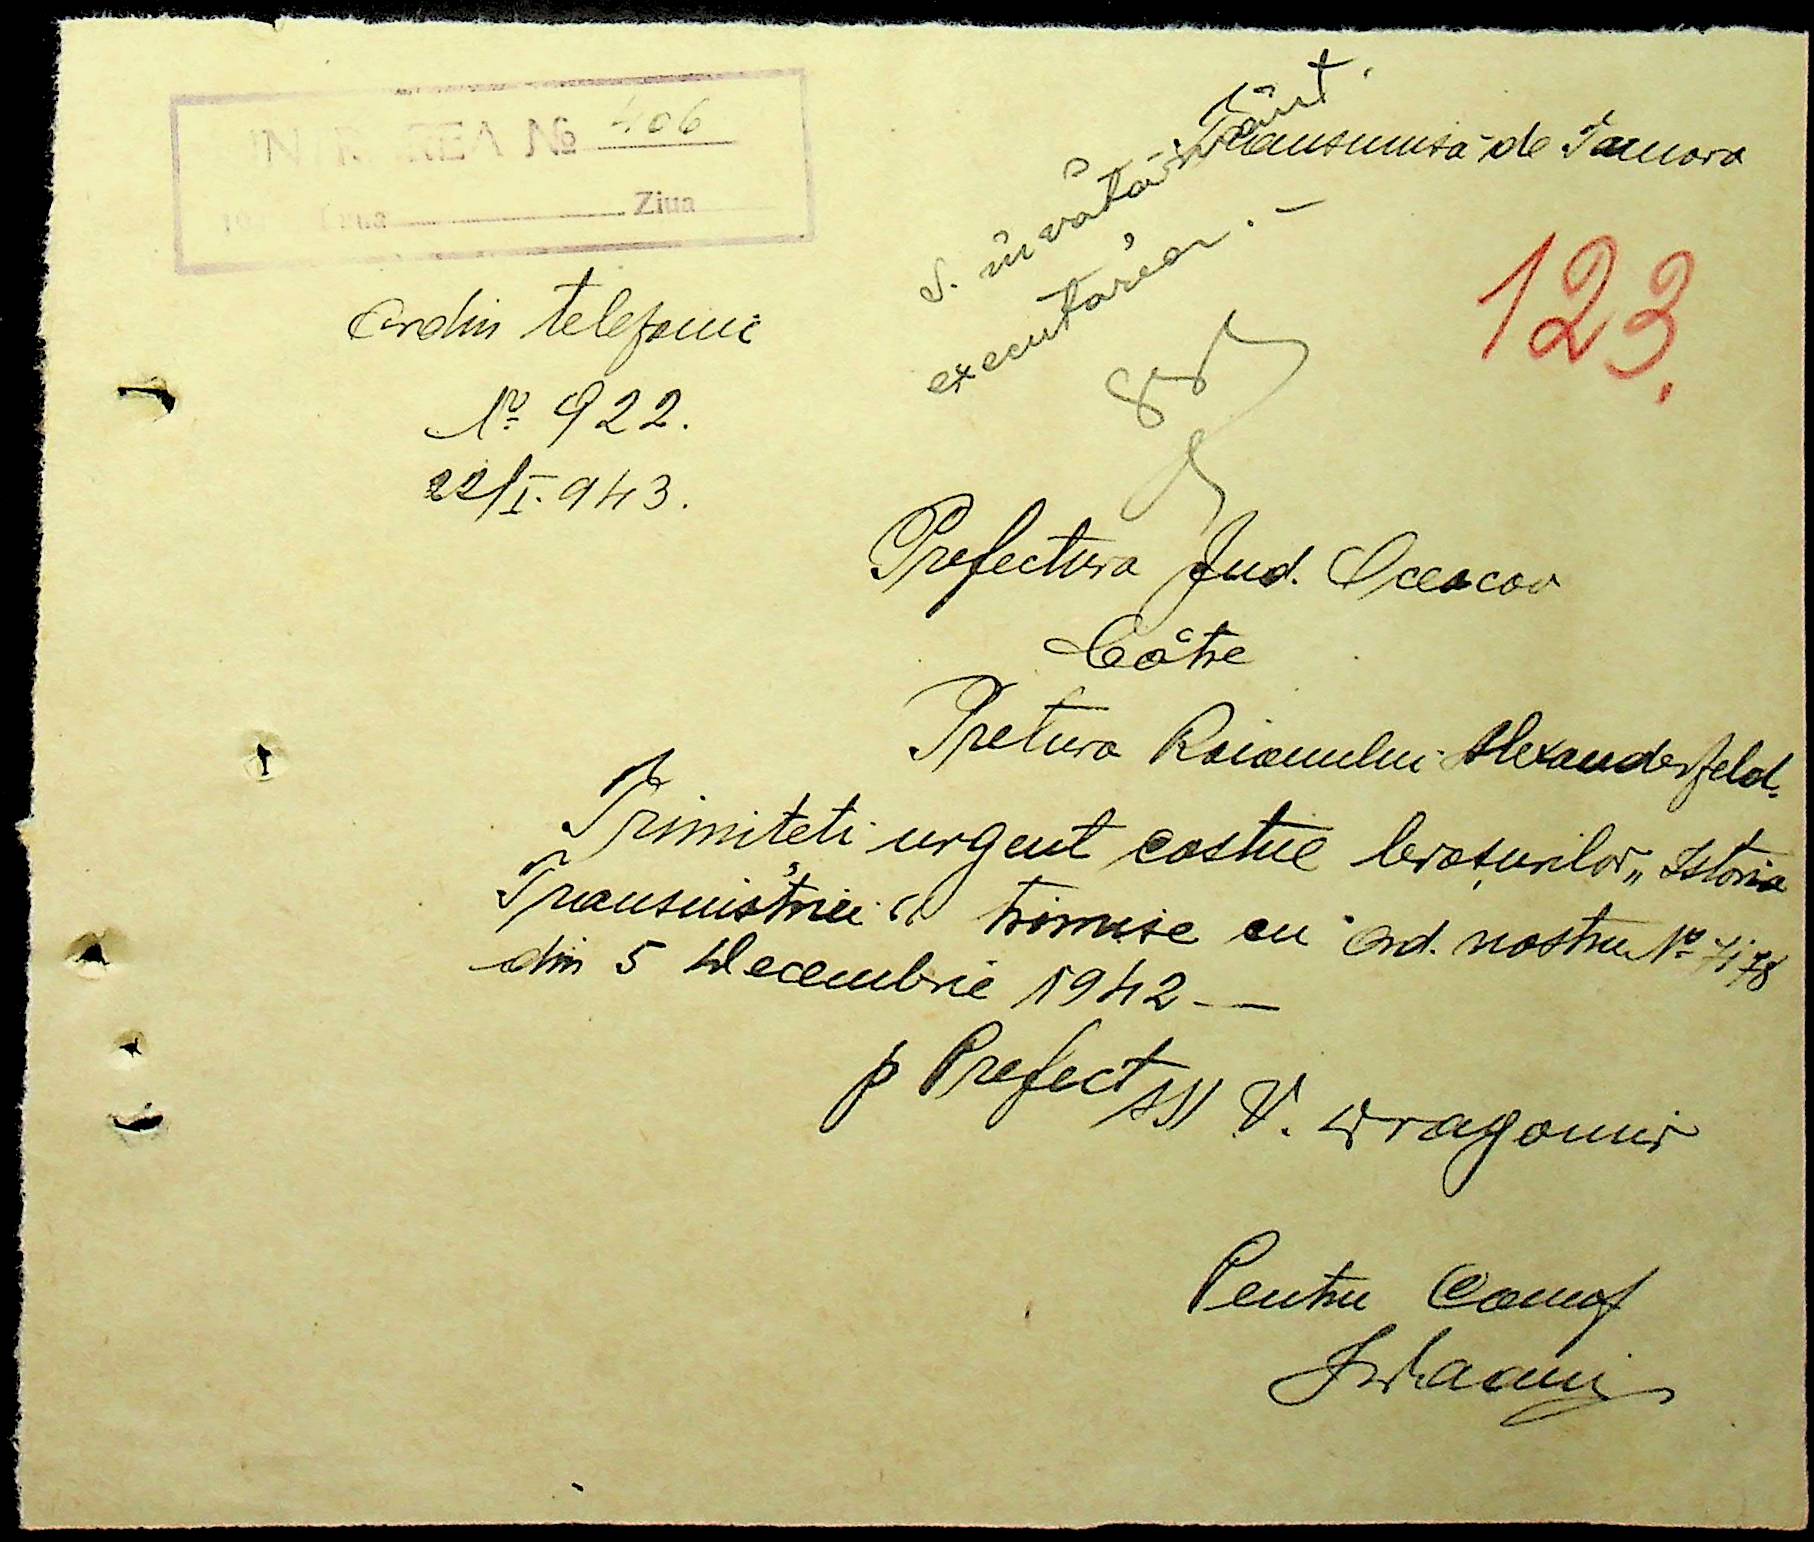 INTRAREA № 406
Luna Ziua
Transmisă de Tamara
S. învătământ.
executarea. —
123.
Ordin telefonic
№ 922.
22/I.943.
Prefectura Jud. Oceacov
Către
Pretura Raionului Alexanderfeld.
Trimiteti urgent costul broșurilor „Istoria
Transnistriei" trimise cu ord. nostru № 7178
din 5 Decembrie 1942 —
p Prefect ss V. Dragomir
Pentru Conf